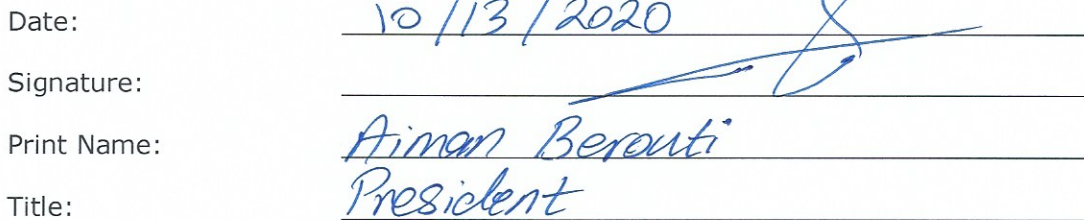 Date: 10/13/2020
Signature:
Print Name: Aiman Berouti
Title: President